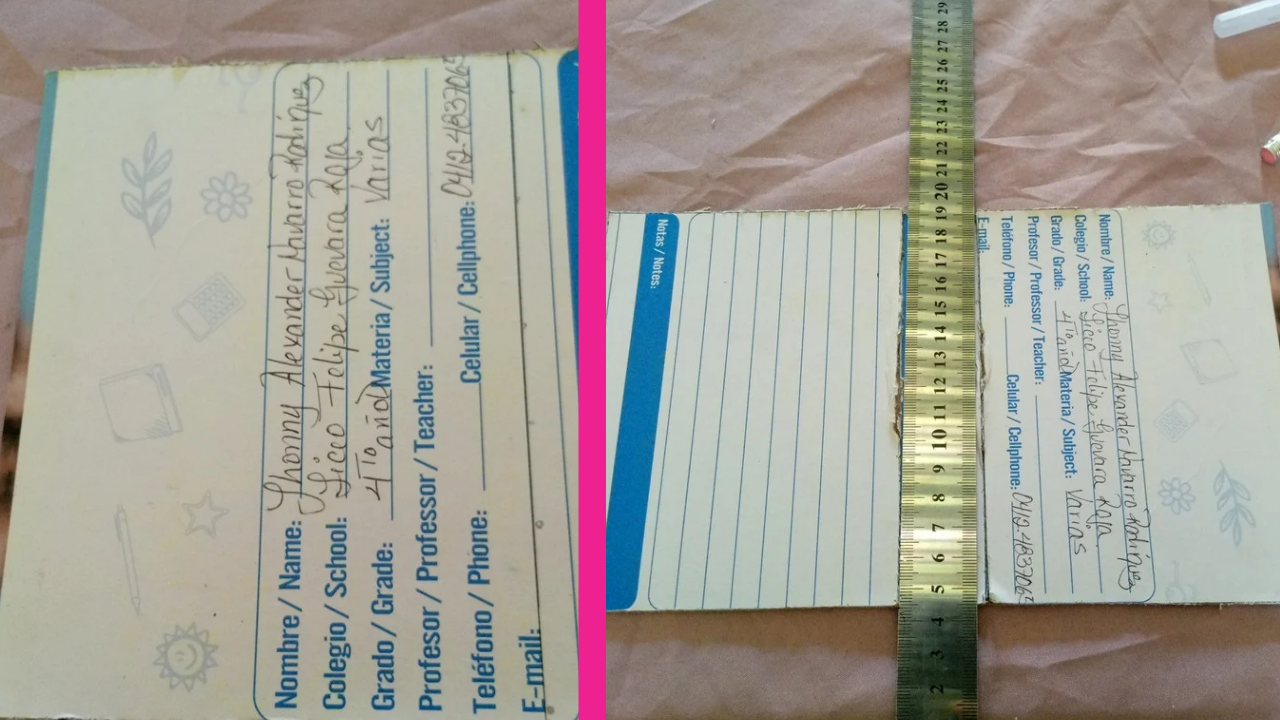 Nombre / Name: Jhonny Alexander Navarro Rodríguez
Colegio / School: Liceo Felipe Guevara Rojas
Grado / Grade: 4to año Materia / Subject: Varias
Profesor / Professor / Teacher:
Teléfono / Phone: Celular / Cellphone: 0412-4837065
E-mail:
Notas / Notes:
2 3 4 5 6 7 8 9 10 11 12 13 14 15 16 17 18 19 20 21 22 23 24 25 26 27 28 29
Nombre / Name: Jhonny Alexander Navarro Rodríguez
Colegio / School: Liceo Felipe Guevara Rojas
Grado / Grade: 4to año Materia / Subject: Varias
Profesor / Professor / Teacher:
Teléfono / Phone: Celular / Cellphone: 0412-4837065
E-mail: